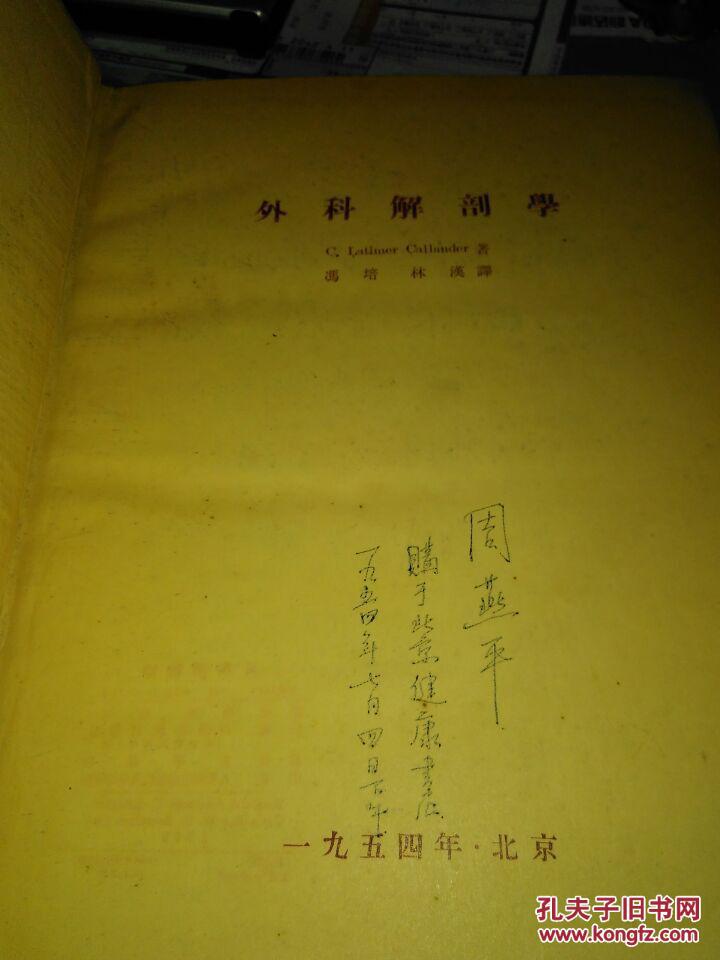 外科解剖學
C. Latimer Callander 著
馮培 林漢譯
周燕平
購于北京健康書店
一九五四年七月四日下午
一九五四年·北京
孔夫子旧书网
www.kongfz.com